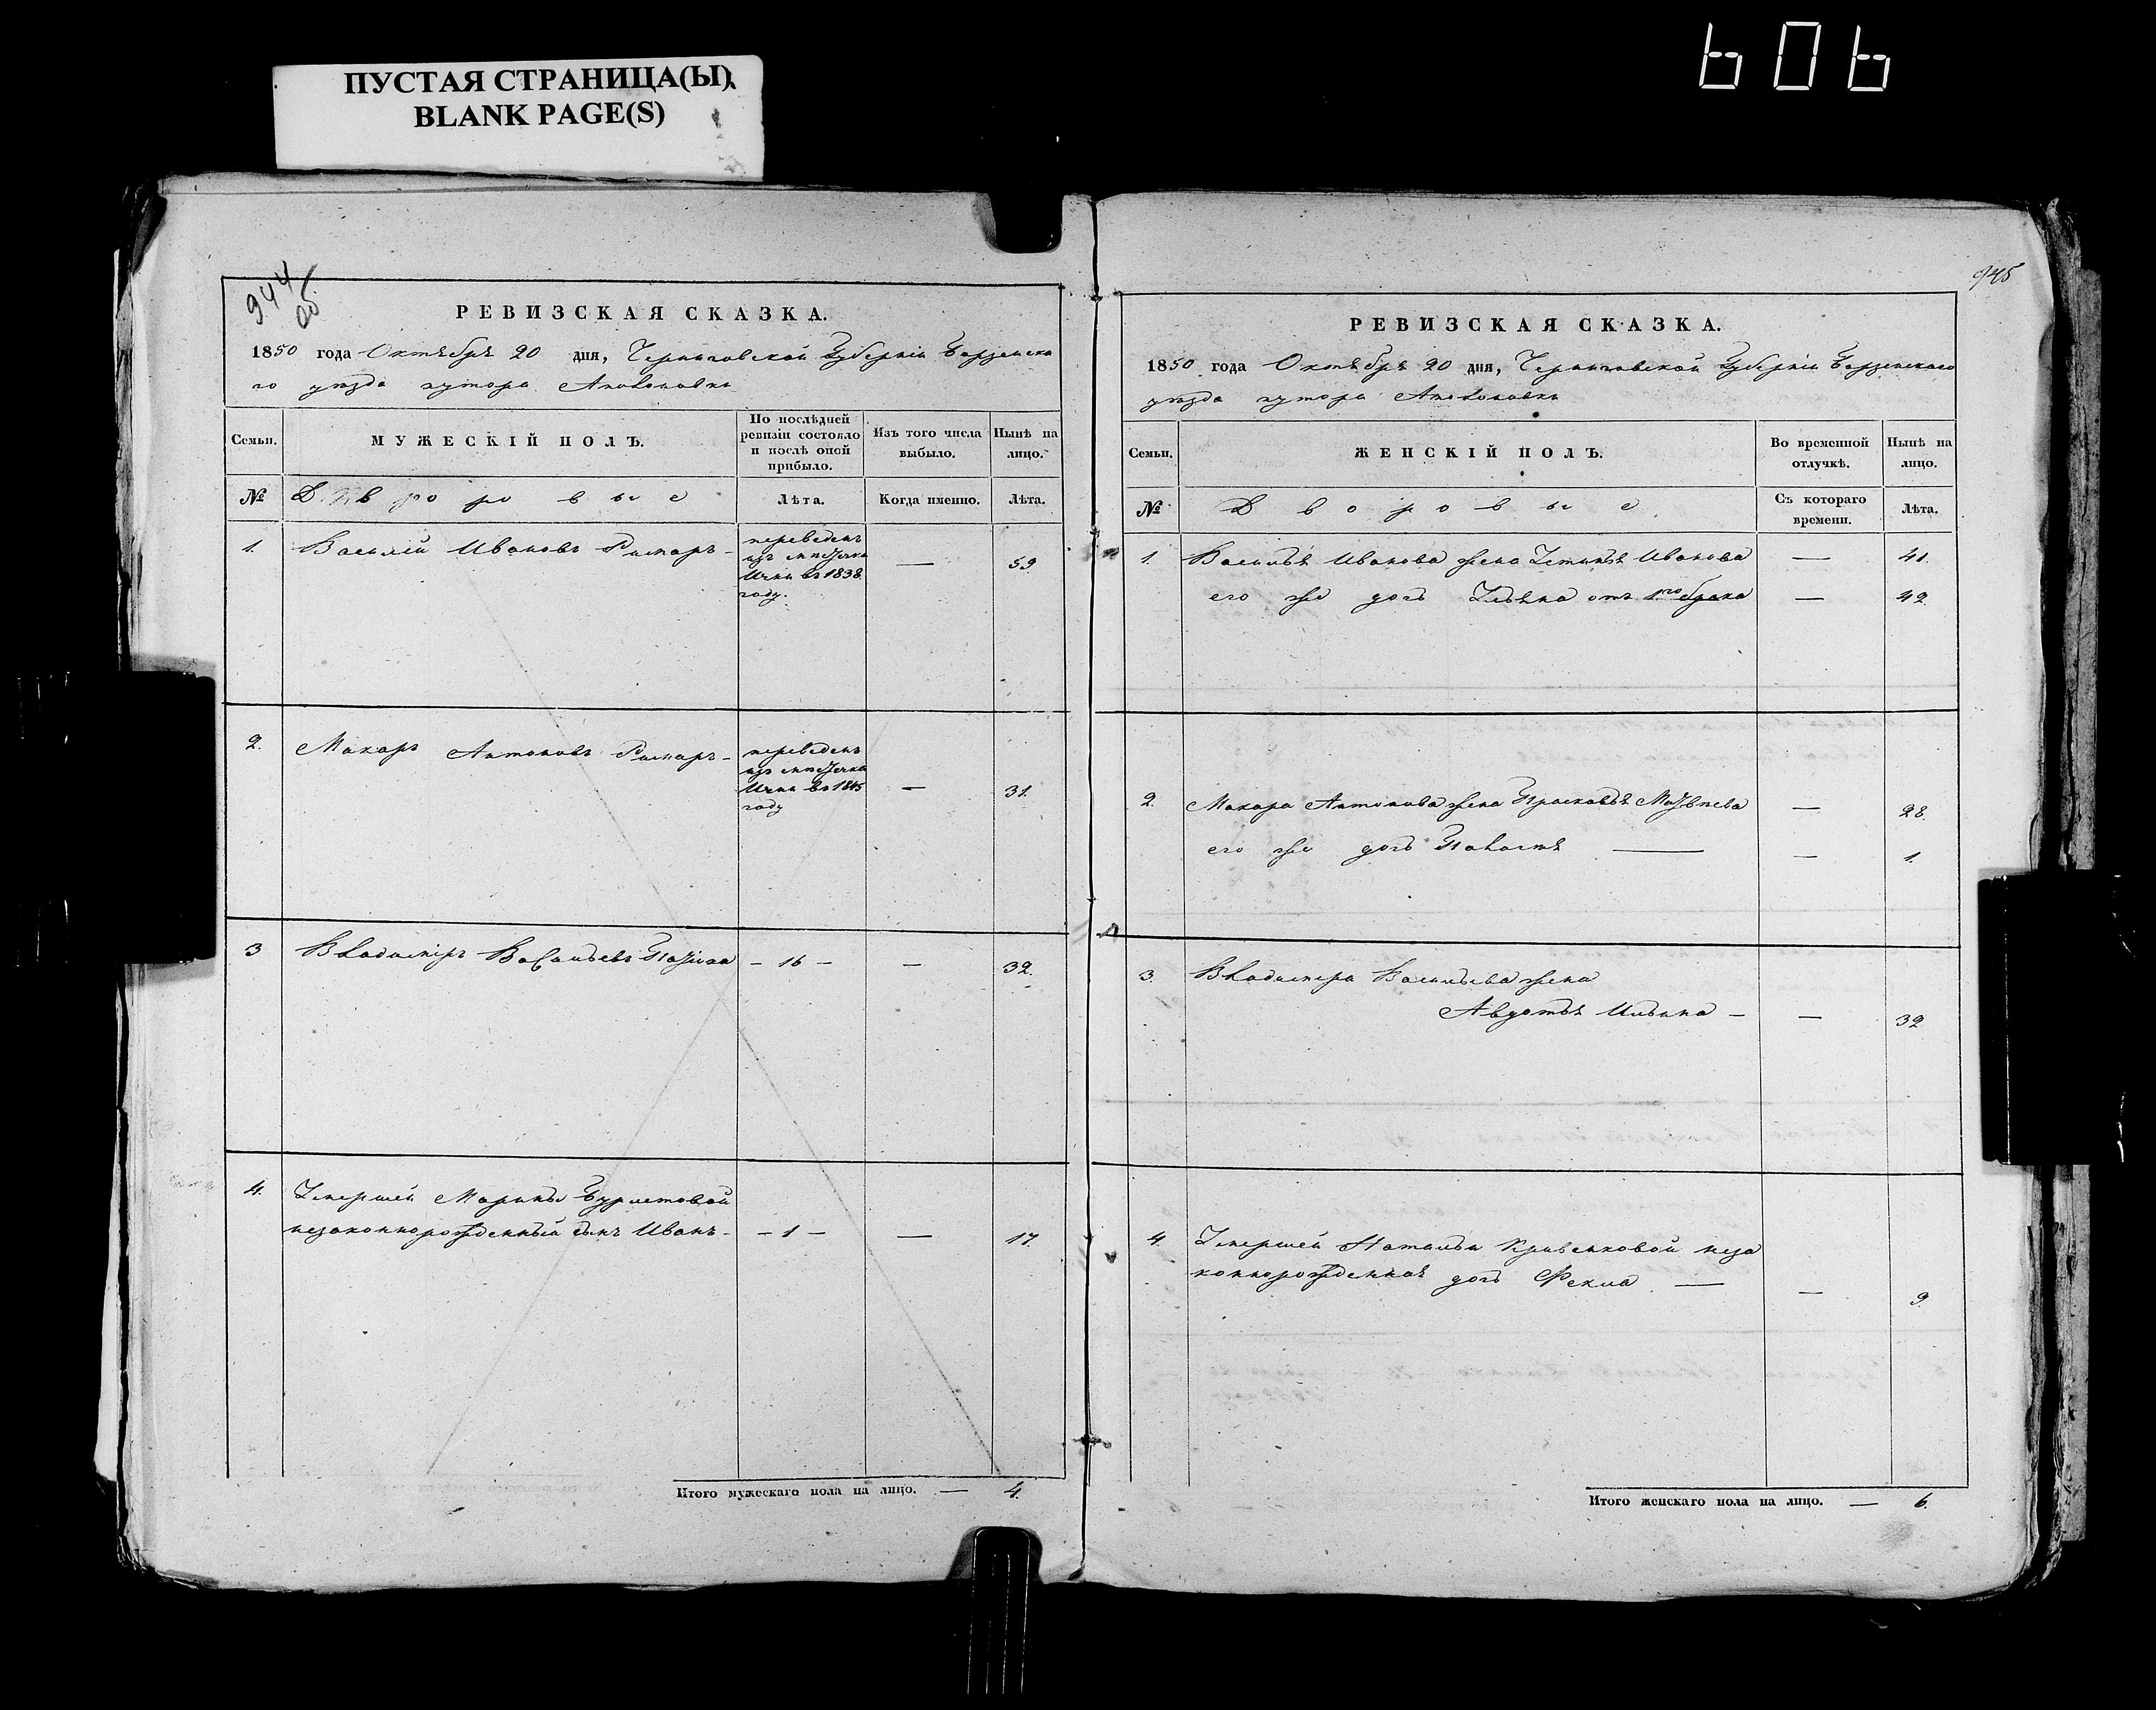 ПУСТАЯ СТРАНИЦА(Ы)
BLANK PAGE(S)
606
944
об
РЕВИЗСКАЯ СКАЗКА.
1850 года Октября 20 дня, Черниговской Губерніи Борзенска
го уѣзда хутора
Семьи.
МУЖЕСКІЙ ПОЛЪ.
По послѣдней ревизіи состояло и послѣ оной прибыло.
Изъ того числа выбыло.
Нынѣ на лицо.
№
Дворовые
Лѣта.
Когда именно.
Лѣта.
1. Василій Ивановъ Римаръ - переведенъ изъ мѣстечка Ични въ 1838 году. — 59
2. Макаръ Антоновъ Римаръ - переведенъ изъ мѣстечка Ични въ 1845 году — 31.
3 Владиміръ Васильевъ - 16 - — 32.
4. Умершей Марины Бурметовой
незаконнорожденный сынъ Иванъ - - 1 - — 17.
Итого мужескаго пола на лицо. — 4.
945
РЕВИЗСКАЯ СКАЗКА.
1850 года Октября 20 дня, Черниговской Губерніи Борзенскаго
уѣзда хутора
Семьи.
ЖЕНСКІЙ ПОЛЪ.
Во временной отлучкѣ.
Нынѣ на лицо.
№
Дворовые
Съ котораго времени.
Лѣта.
1. Василья Иванова жена Устинья Иванова — 41.
его же дочь Ульяна отъ 1го брака — 42
2. Макара Антонова жена Прасковья Матвѣева — 28.
его же дочь — — 1.
3. Владиміра Васильева жена
Авдотья Ильина - — 32
4. Умершей Натальи Кривенковой неза
коннорожденная дочь Фекла — — 9.
Итого женскаго пола на лицо. — 6.